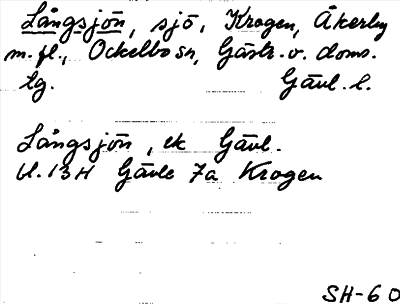 Långsjön, sjö, Krogen, Åkerby
m.fl., Ockelbo sn, Gästr. v. doms.
lg. Gävl. l.
Långsjön, ek Gävl.
Bl. 13H Gävle 7a Krogen
SH-60